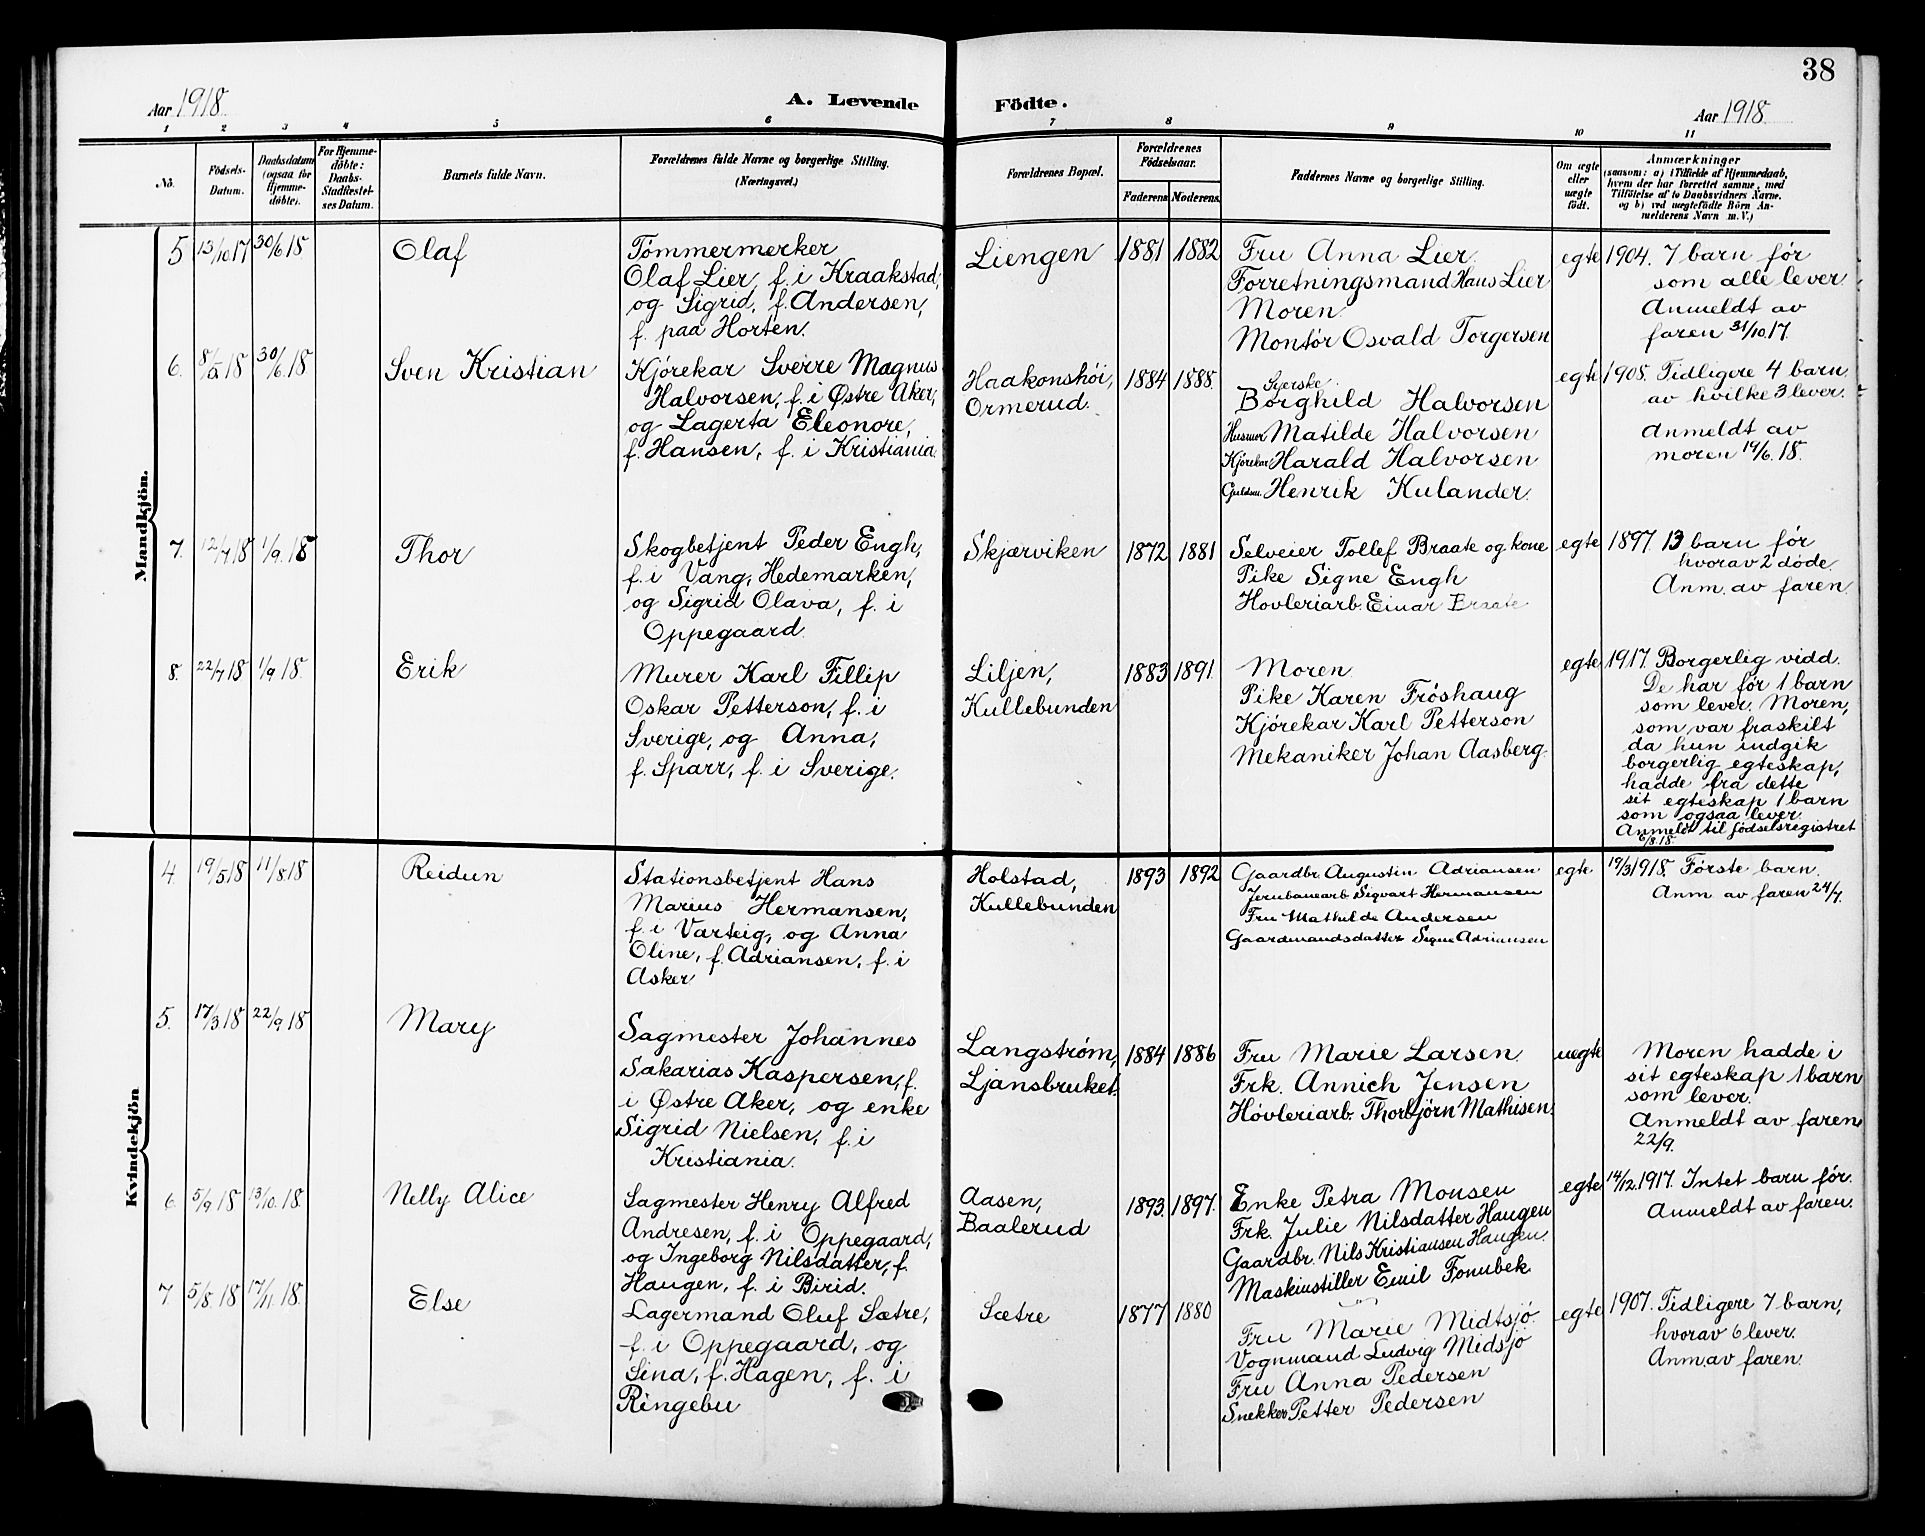 38
Aar 1918. A. Levende Födte. Aar 1918.
1 2 3 4 5 6 7 8 9 10 11
No. Födsels-Datum. Daabsdatum (ogsaa for Hjemme-döbte). For Hjemme-döbte: Daabs-Stadfæstel-ses Datum. Barnets fulde Navn. Forældrenes fulde Navne og borgerlige Stilling. (Næringsvei.) Forældrenes Bopæl. Forældrenes Födselsaar. Faderens Moderens. Faddernes Navne og borgerlige Stilling. Om ægte eller uægte født.
Anmærkninger
(saasom: a) i Tilfælde af Hjemmedaab,
hvem der har forrettet samme, med
Tilføielse af to Daabsvidners Navne.
og b) ved uægtefødte Börn An-
melderens Navn m. V.)
Mandkjön.
5 13/10.17 30/6.18 Olaf
Tømmermerker
Olaf Lier, f. i Kraakstad,
og Sigrid, f. Andersen,
f. paa Horten.
Liengen 1881 1882
Fru Anna Lier
Forretningsmand Hans Lier
Moren
Montør Osvald Torgersen
egte
1904. 7 barn før
som alle lever.
Anmeldt av
faren 31/10.17.
6. 30/6.18 Sven Kristian
Kjørekar Sverre Magnus
Halvorsen, f. i Østre Aker,
og Lagerta Eleonore,
f. Hansen, f. i Kristiania.
Haakonshøi,
Ormerud.
1884 1888.
Syerske
Borghild Halvorsen
Husmor Matilde Halvorsen
Kjørekar Harald Halvorsen
Guldsm. Henrik Kulander.
egte
1908. Tidligere 4 barn
av hvilke 3 lever.
Anmeldt av
moren 19/6.18.
7. 12/7.18 1/9.18 Thor
Skogbetjent Peder Engh,
f. i Vang, Hedemarken,
og Sigrid Olava, f. i
Oppegaard
Skjærviken 1872 1881
Selveier Tollef Braate og kone
Pike Signe Engh
Hovleriarb. Einar Braate
egte
1897. 13 barn før
hvorav 2 døde.
Anm. av faren.
8. 22/7.18 1/9.18. Erik
Murer Karl Fillip
Oskar Petterson, f. i
Sverige, og Anna,
f. Sparr, f. i Sverige.
Liljen,
Kullebunden
1883 1891
Moren
Pike Karen Frøshaug
Kjørekar Karl Petterson
Mekaniker Johan Aasberg.
egte
1917. Borgerlig vidd.
De har før 1 barn
som lever. Moren,
som var fraskilt
da hun indgik
borgerlig egteskap,
hadde fra dette
sit egteskap 1 barn
som ogsaa lever.
Anmeldt til fødselsregistret
6/8.18.
Kvindekjön
4. 19/5.18 11/8.18 Reidun
Stationsbetjent Hans
Marius Hermansen,
f. i Varteig, og Anna
Oline, f. Adriansen, f. i
Asker
Holstad,
Kullebunden
1893 1892
Gaardbr. Augustin Adriansen
Jernbanearb. Sigvart Hermansen
Fru Mathilde Andersen
Gaardmandsdatter Signe Adriansen
egte
19/3 1918. Første barn.
Anm av faren 24/7.
5. 17/3.18 22/9.18 Mary
Sagmester Johannes
Sakarias Kaspersen, f.
i Østre Aker, og enke
Sigrid Nielsen, f. i
Kristiania.
Langstrøm,
Ljansbruket.
1884 1886
Fru Marie Larsen
Frk. Annich Jensen
Høvleriarb. Thorbjörn Mathisen.
uegte
Moren hadde i
sit egteskap 1 barn
som lever.
Anmeldt av faren
22/9.
6. 5/9.18 13/10.18. Nelly Alice
Sagmester Henry Alfred
Andresen, f. i Oppegaard,
og Ingeborg Nilsdatter, f.
Haugen, f. i Birid.
Aasen,
Baalerud
1893. 1897.
Enke Petra Monsen
Frk. Julie Nilsdatter Haugen
Gaardbr. Nils Kristiansen Haugen.
Maskinstiller Emil Fonnbek
egte
14/12.1917. Intet barn før.
Anmeldt av faren.
7. 5/8.18 17/11.18. Else
Lagermand Oluf Sætre,
f. i Oppegaard, og
Sina, f. Hagen, f. i
Ringebu
Sætre 1877 1880
Fru Marie Midtsjö.
Vognmand Ludvig Midsjö
Fru Anna Pedersen
Snekker Petter Pedersen
egte
1907. Tidligere 7 barn,
hvorav 6 lever.
Anm. av faren.